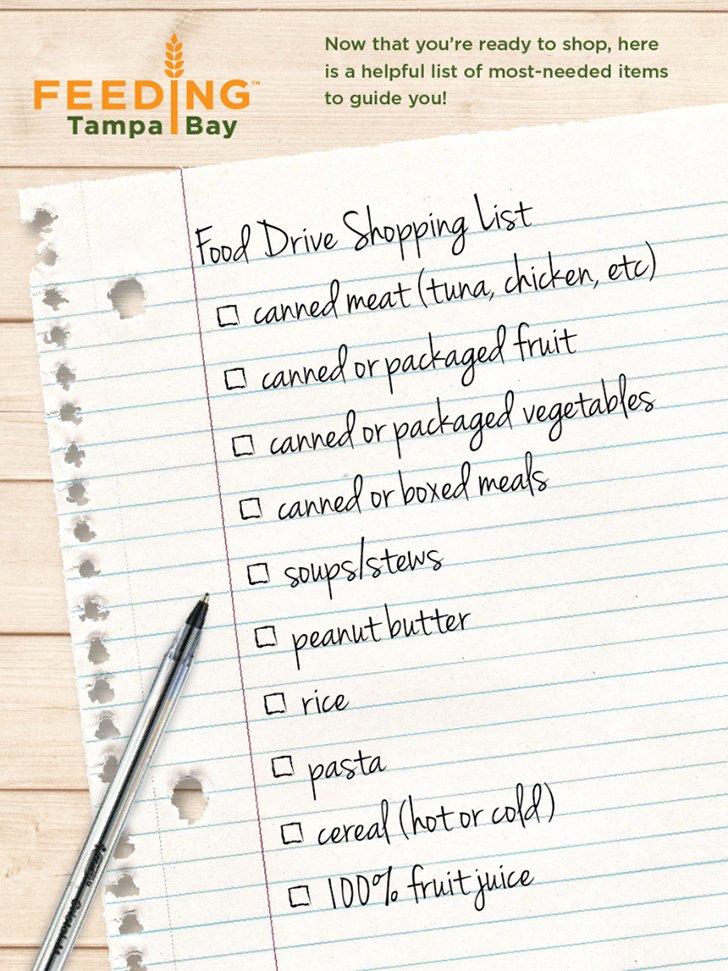 FEEDING™
Tampa Bay
Now that you're ready to shop, here
is a helpful list of most-needed items
to guide you!
Food Drive Shopping List
canned meat (tuna, chicken, etc)
canned or packaged fruit
canned or packaged vegetables
canned or boxed meals
soups/stews
peanut butter
rice
pasta
cereal (hot or cold)
100% fruit juice